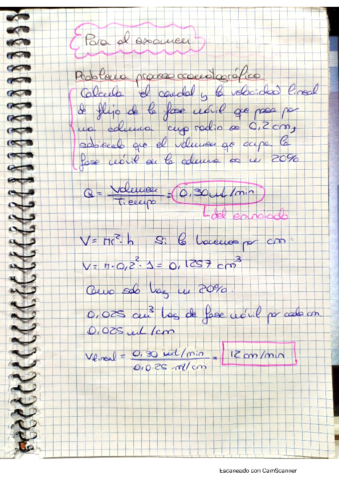 Para el examen
Problema proceso cromatográfico
Calcula el caudal y la velocidad lineal
de flujo de la fase móvil que pasa por
una columna cuyo radio es 0,2 cm,
sabiendo que el volumen que ocupa la
fase móvil en la columna es un 20%
Q = Volumen / Tiempo = 0,30 mL/min
del enunciado
V = πr²·h Si lo hacemos por cm.
V = π·0,2²·1 = 0,1257 cm³
Como solo hay un 20%
0,025 cm³ hay de fase móvil por cada cm.
0,025 mL/cm
Vlineal = 0,30 mL/min / 0,025 ml/cm = 12 cm/min
Escaneado con CamScanner